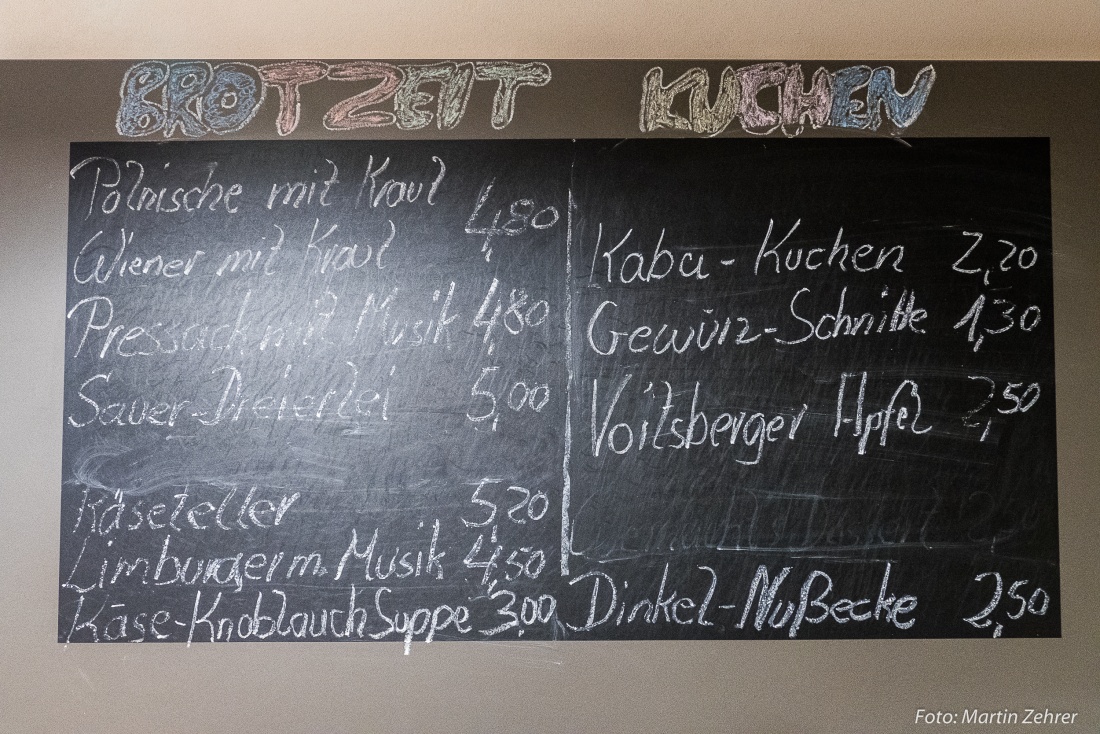 BROTZEIT
Polnische mit Kraut
4,80
Wiener mit Kraut
Pressack mit Musik 4,80
Sauer-Dreierlei 5,00
Käseteller 5,20
Limburger m. Musik 4,50
Käse-Knoblauch Suppe 3,00
KUCHEN
Kaba-Kuchen 2,20
Gewürz-Schnitte 1,30
Voitsberger Apfel 2,50
Dessert
Dinkel-Nußecke 2,50
Foto: Martin Zehrer